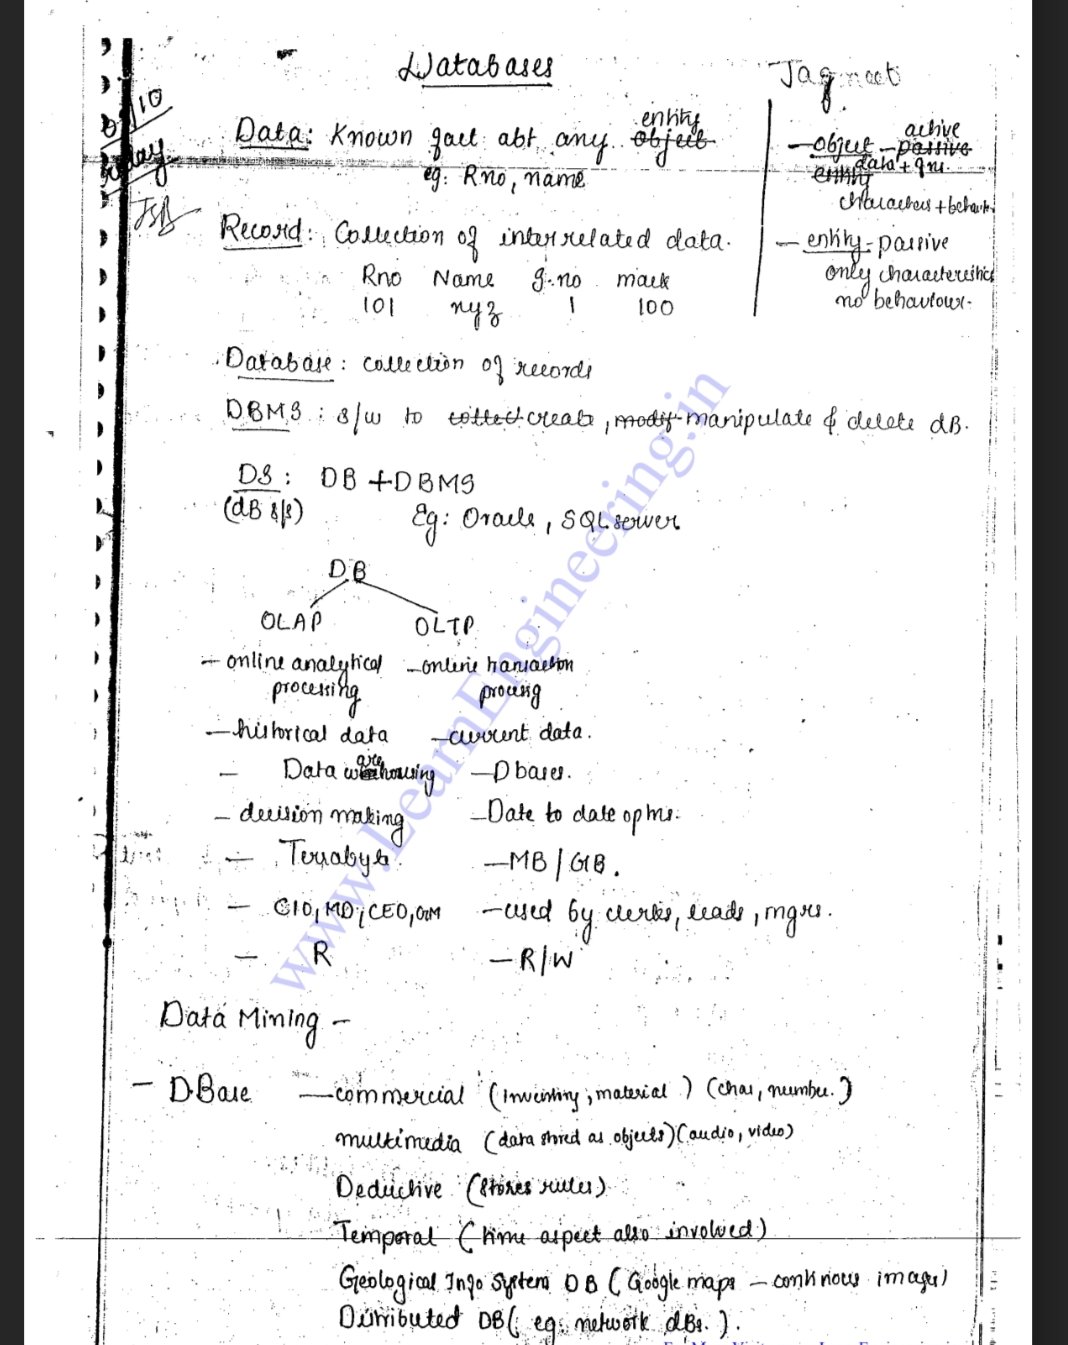 Databases
Data: Known fact abt any object entity
eg: Rno, name
Record: Collection of interrelated data.
Rno Name g.no mark
101 xyz 1 100
- object - passive active
entity data + fns.
characters + behavi
- entity - passive
only characteristics
no behaviour.
Database: collection of records
DBMS: s/w to collect create, modify manipulate & delete dB.
DS: DB + DBMS
(dB s/s) Eg: Oracle, SQL server
DB
OLAP OLTP
- online analytical processing - online transaction processing
- historical data - current data.
- Data warehousing - Dbases.
- decision making - Date to date optns.
- Terrabyte - MB/GB.
- CIO, MD, CEO, GM - used by clerks, leads, mgrs.
- R - R/W
Data Mining -
- DBase - commercial (Inventory, material) (char, number.)
multimedia (data stored as objects) (audio, video)
Deductive (stores rules)
Temporal (time aspect also involved)
Geological Info System DB (Google maps - continous images)
Distributed DB (eg. network dBs.).
www.LearnEngineering.in